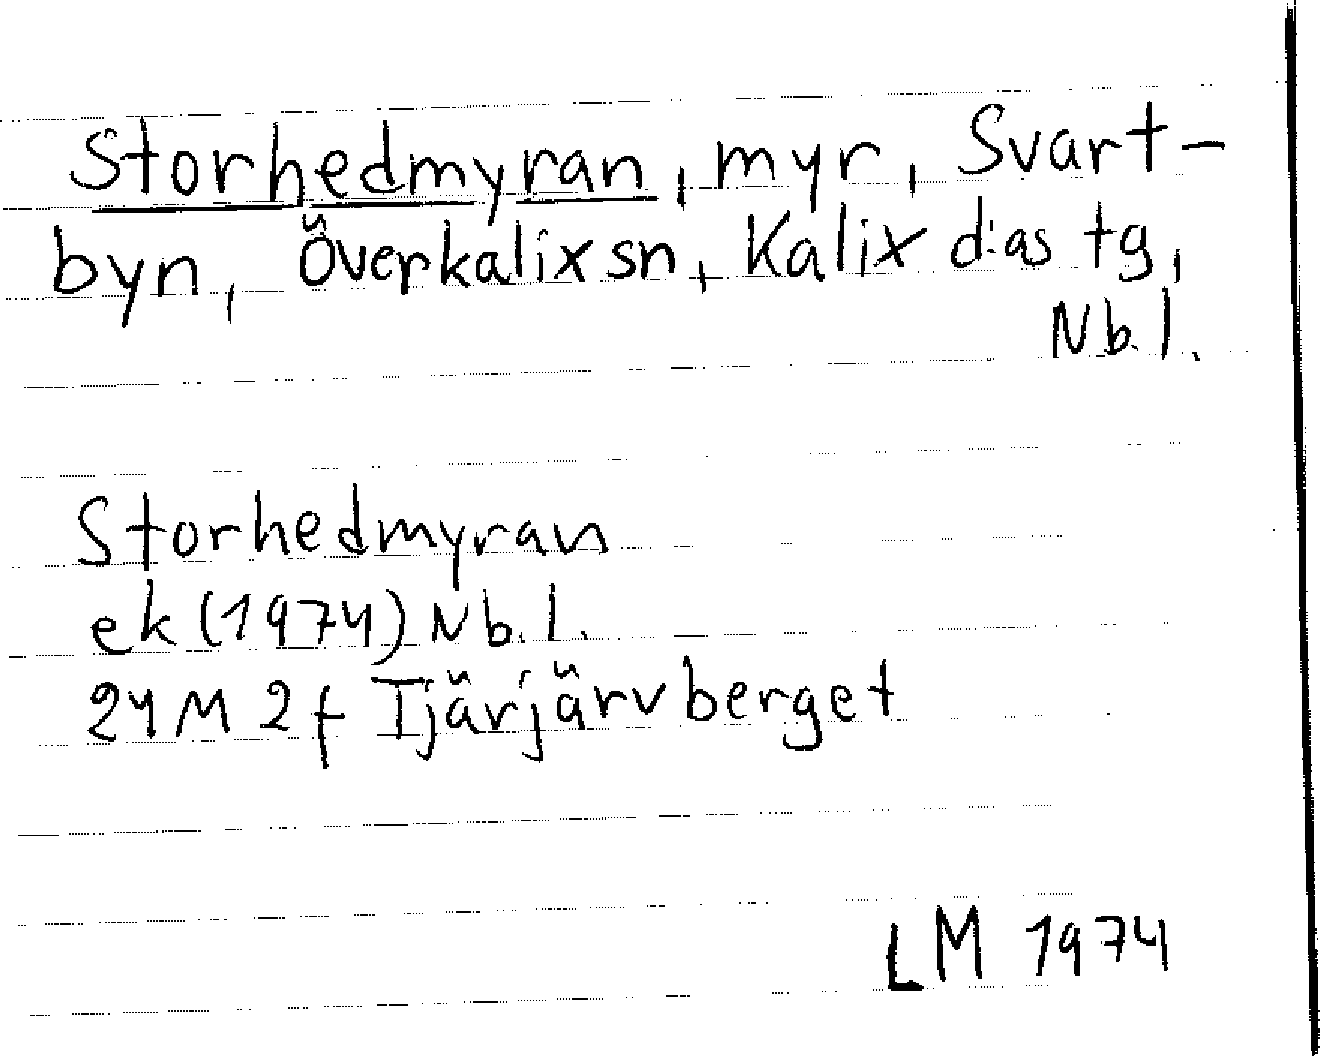 Storhedmyran, myr, Svart-
byn, Överkalix sn, Kalix d:as tg,
Nb. l.
Storhedmyran
ek (1974) Nb. l.
24 M 2 f Tjärjärvberget
LM 1974